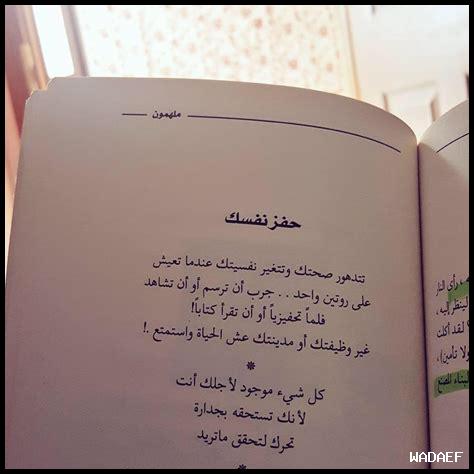 ملهمون
حفز نفسك
تتدهور صحتك وتتغير نفسيتك عندما تعيش
على روتين واحد . . جرب أن ترسم أو أن تشاهد
فلماً تحفيزياً أو أن تقرأ كتاباً!
غير وظيفتك أو مدينتك عش الحياة واستمتع .!
*
كل شيء موجود لأجلك أنت
لأنك تستحقه بجدارة
تحرك لتحقق ماتريد
*
رأى النار
لينظر إليه ،
لقد أكلت
ولا تأمين) ،
لبناء المصنع
WADAEF